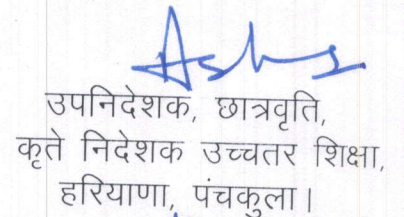 उपनिदेशक, छात्रवृति,
कृते निदेशक उच्चतर शिक्षा,
हरियाणा, पंचकुला।